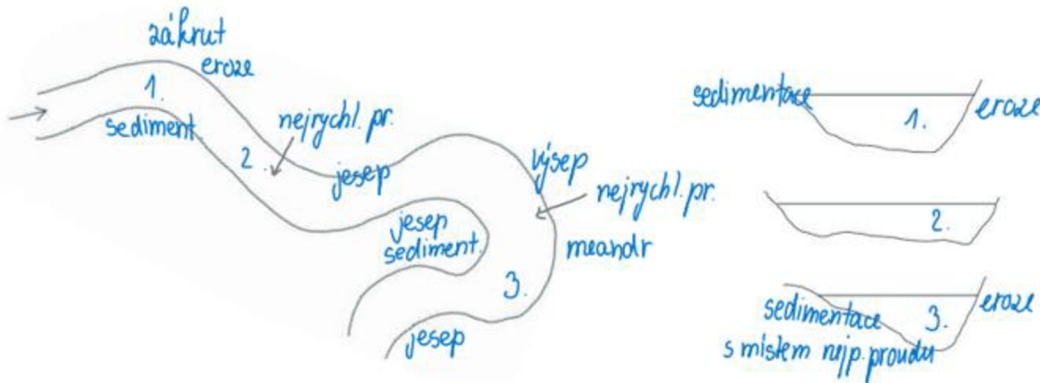 zákrut
eroze
1.
sediment.
nejrychl. pr.
2.
jesep
výsep
nejrychl. pr.
jesep
sediment.
meandr
3.
jesep
sedimentace
1.
eroze
2.
3.
eroze
sedimentace
s místem nejp. proudu